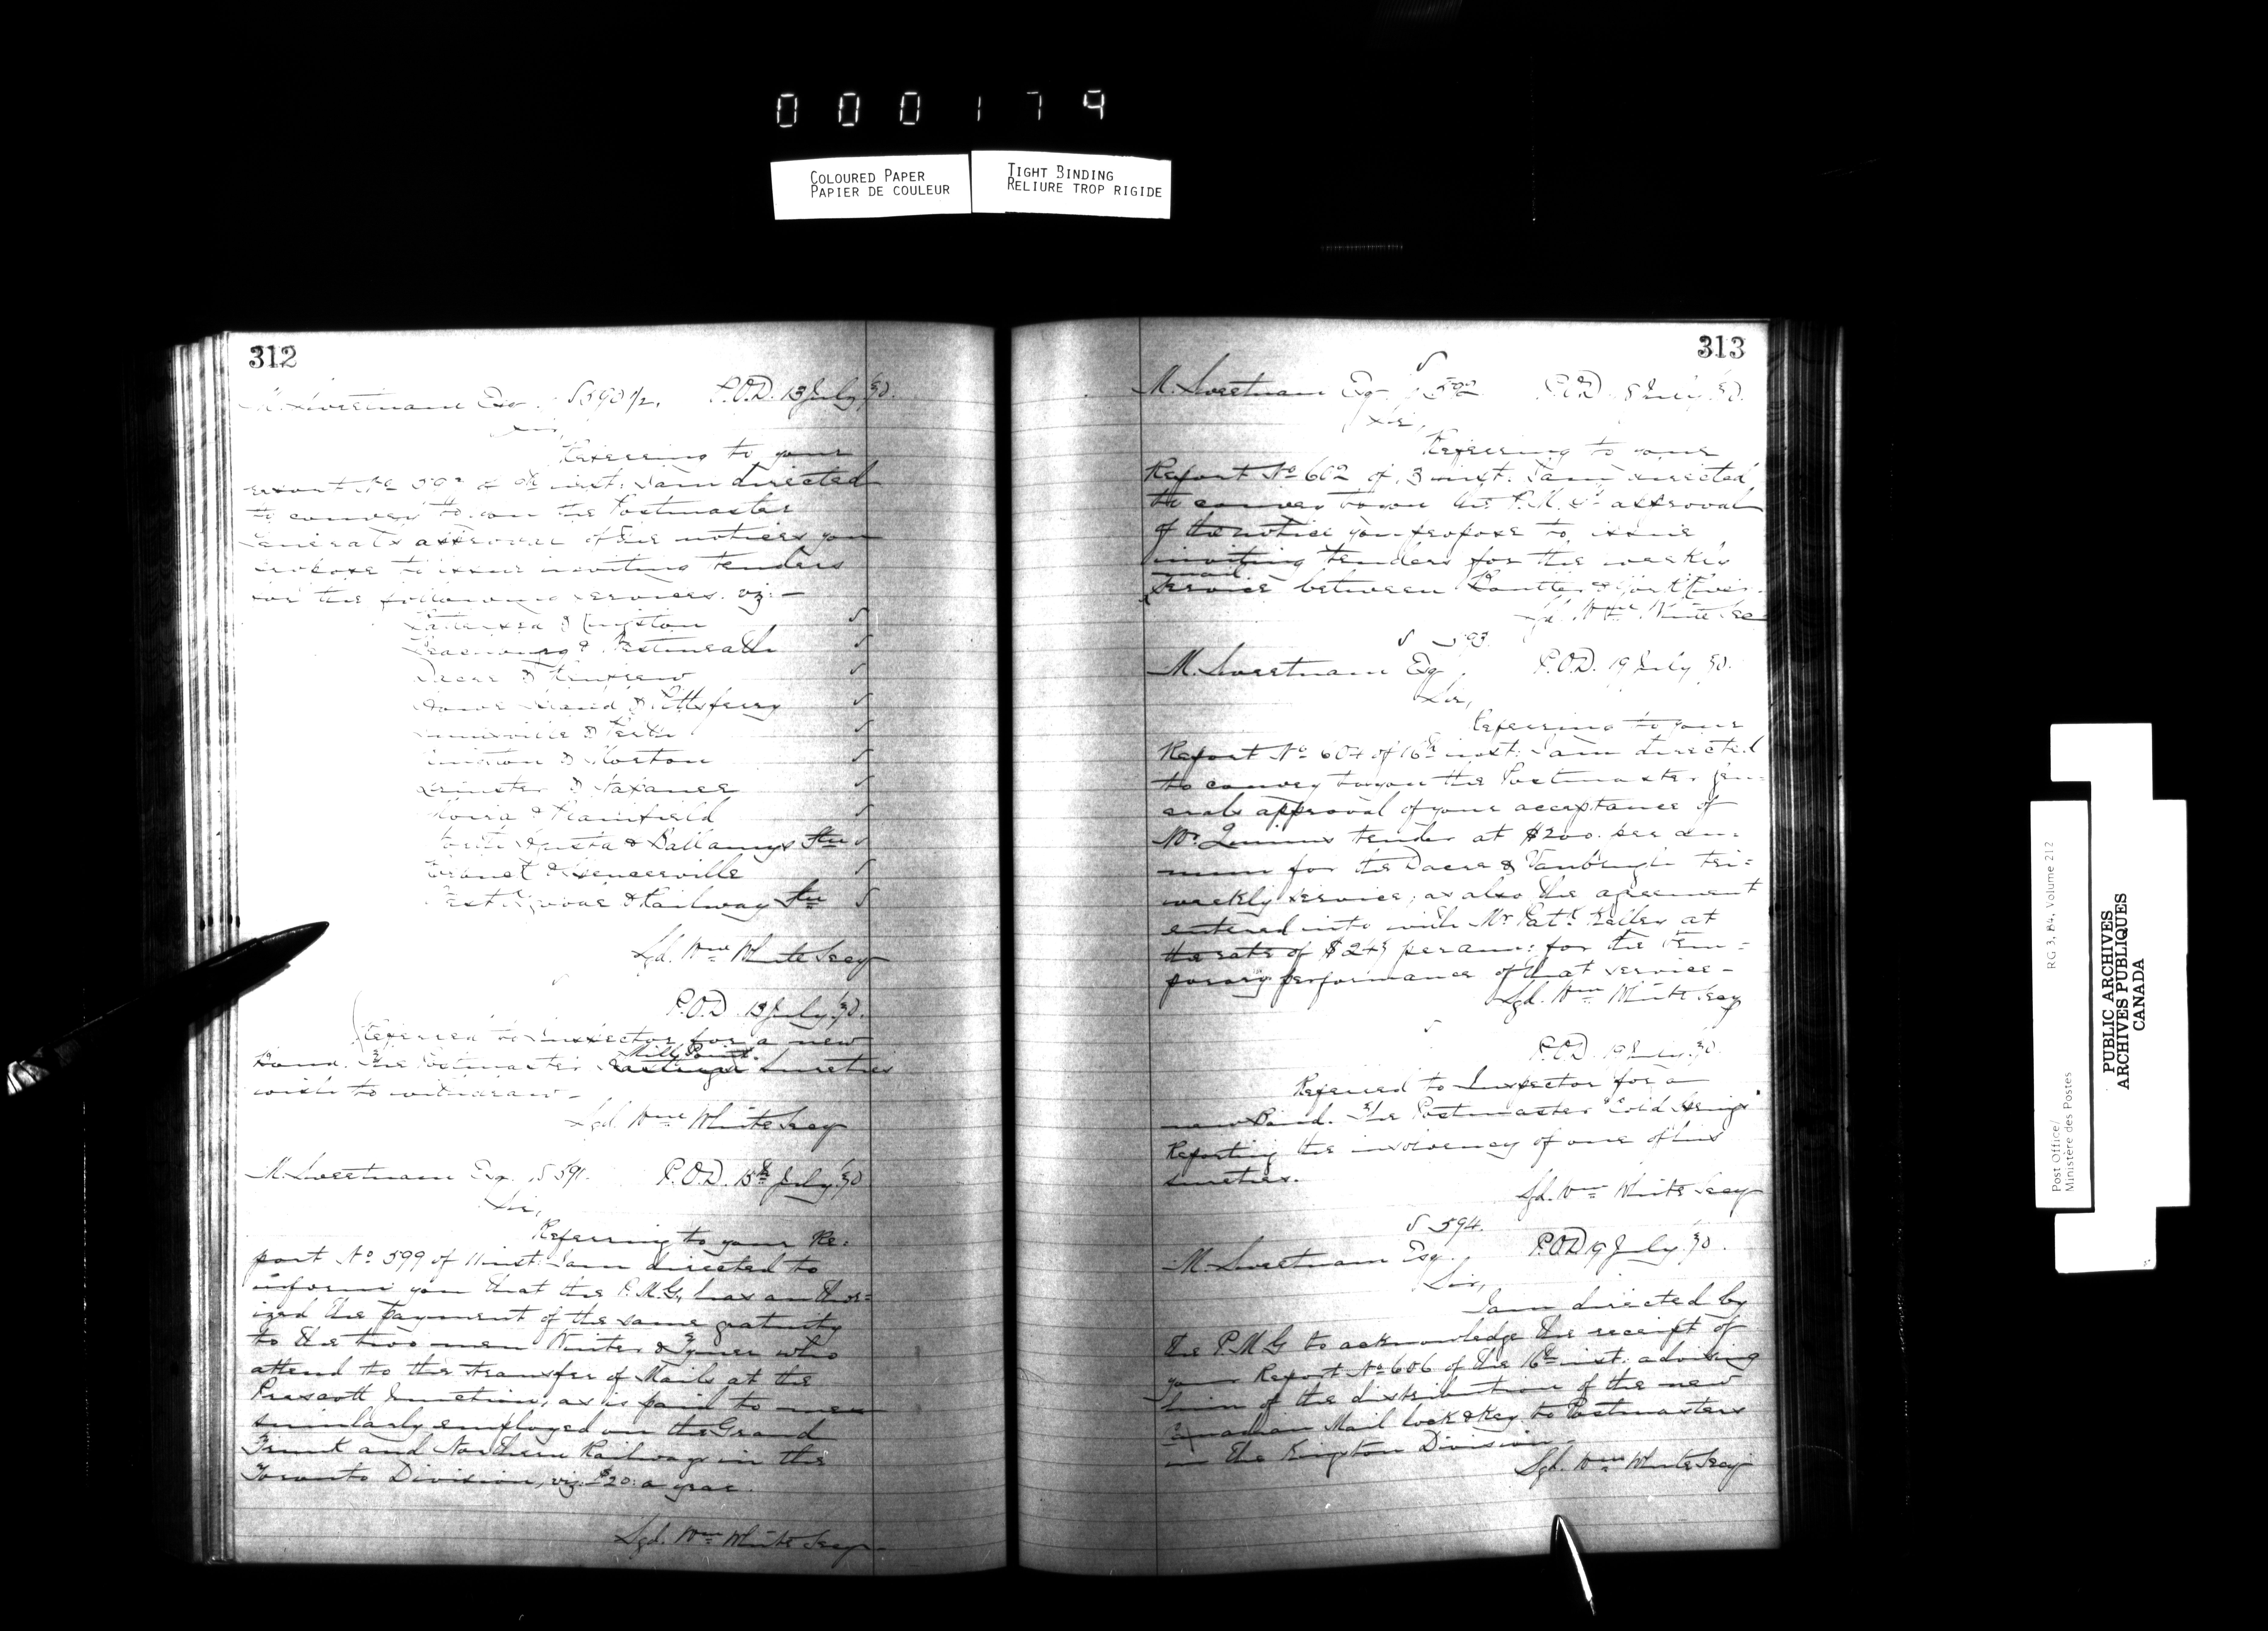 000179
COLOURED PAPER
PAPIER DE COULEUR
TIGHT BINDING
RELIURE TROP RIGIDE
312
M. Sweetnam Esq. S 590 1/2. P.O.D. 13 July '80.
Sir,
Referring to your
report No 592 of inst: I am directed
to convey to you the Postmaster
Generals approval of the notices you
propose to issue inviting tenders
for the following services. viz: —
Battersea & Kingston
& Westmeath
Dacre & Renfrew
Howe Island & Pittsferry
& Perth
& Morton
Leinster & Napanee
Moira & Plainfield
North Augusta & Bellamys Stn
& Spencerville
& Railway Stn
Sgd. Wm White Secy
P.O.D. 13 July '80.
Referred to Inspector for a new
Bond. The Postmaster Mill Point Sureties
wish to withdraw —
Sgd. Wm White Secy
M. Sweetnam Esq. S 591. P.O.D. 15th July '80
Sir,
Referring to your Re=
port No 599 of 11 inst: I am directed to
inform you that the P.M.G. has author=
ized the payment of the same gratuity
to the two men who
attend to the transfer of Mails at the
Prescott Junction, as is paid to men
similarly employed on the Grand
Trunk and Northern Railways in the
Toronto Division, viz. $20. a year.
Sgd. Wm White Secy
313
M. Sweetnam Esq S 592 P.O.D. July '80.
Sir,
Referring to your
Report No 602 of 13 inst. I am directed
to convey to you the P.M.G's approval
of the notice you propose to issue
inviting tenders for the weekly
mail
service between
Sgd. Wm White Sec
S 593.
M. Sweetnam Esq P.O.D. 19 July '80.
Sir,
Referring to your
Report No 604 of 16th inst: I am directed
to convey to you the Postmaster Gen-
erals approval of your acceptance of
Mr. Quinns tender at $200. per an-
num for the Dacre & Vanbrugh tri=
weekly service; as also the agreement
entered into with Mr Patk Kelley at
the rate of $245 per ann: for the tem=
porary performance of that service —
Sgd. Wm White Secy
P.O.D. 19 July '80.
Referred to Inspector for a
new Bond. The Postmaster Cold Springs
Reporting the insolvency of one of his
sureties.
Sgd. Wm White Secy
S 594.
M. Sweetnam Esq. P.O.D 19 July '80.
Sir,
I am directed by
the P.M.G to acknowledge the receipt of
your Report No 606 of the 16th inst: advising
him of the distribution of the new
Canadian Mail lock & Key to Postmasters
in the Kingston Division.
Sgd. Wm White Secy
Post Office/
Ministère des Postes
RG 3, B4, Volume 212
PUBLIC ARCHIVES
ARCHIVES PUBLIQUES
CANADA